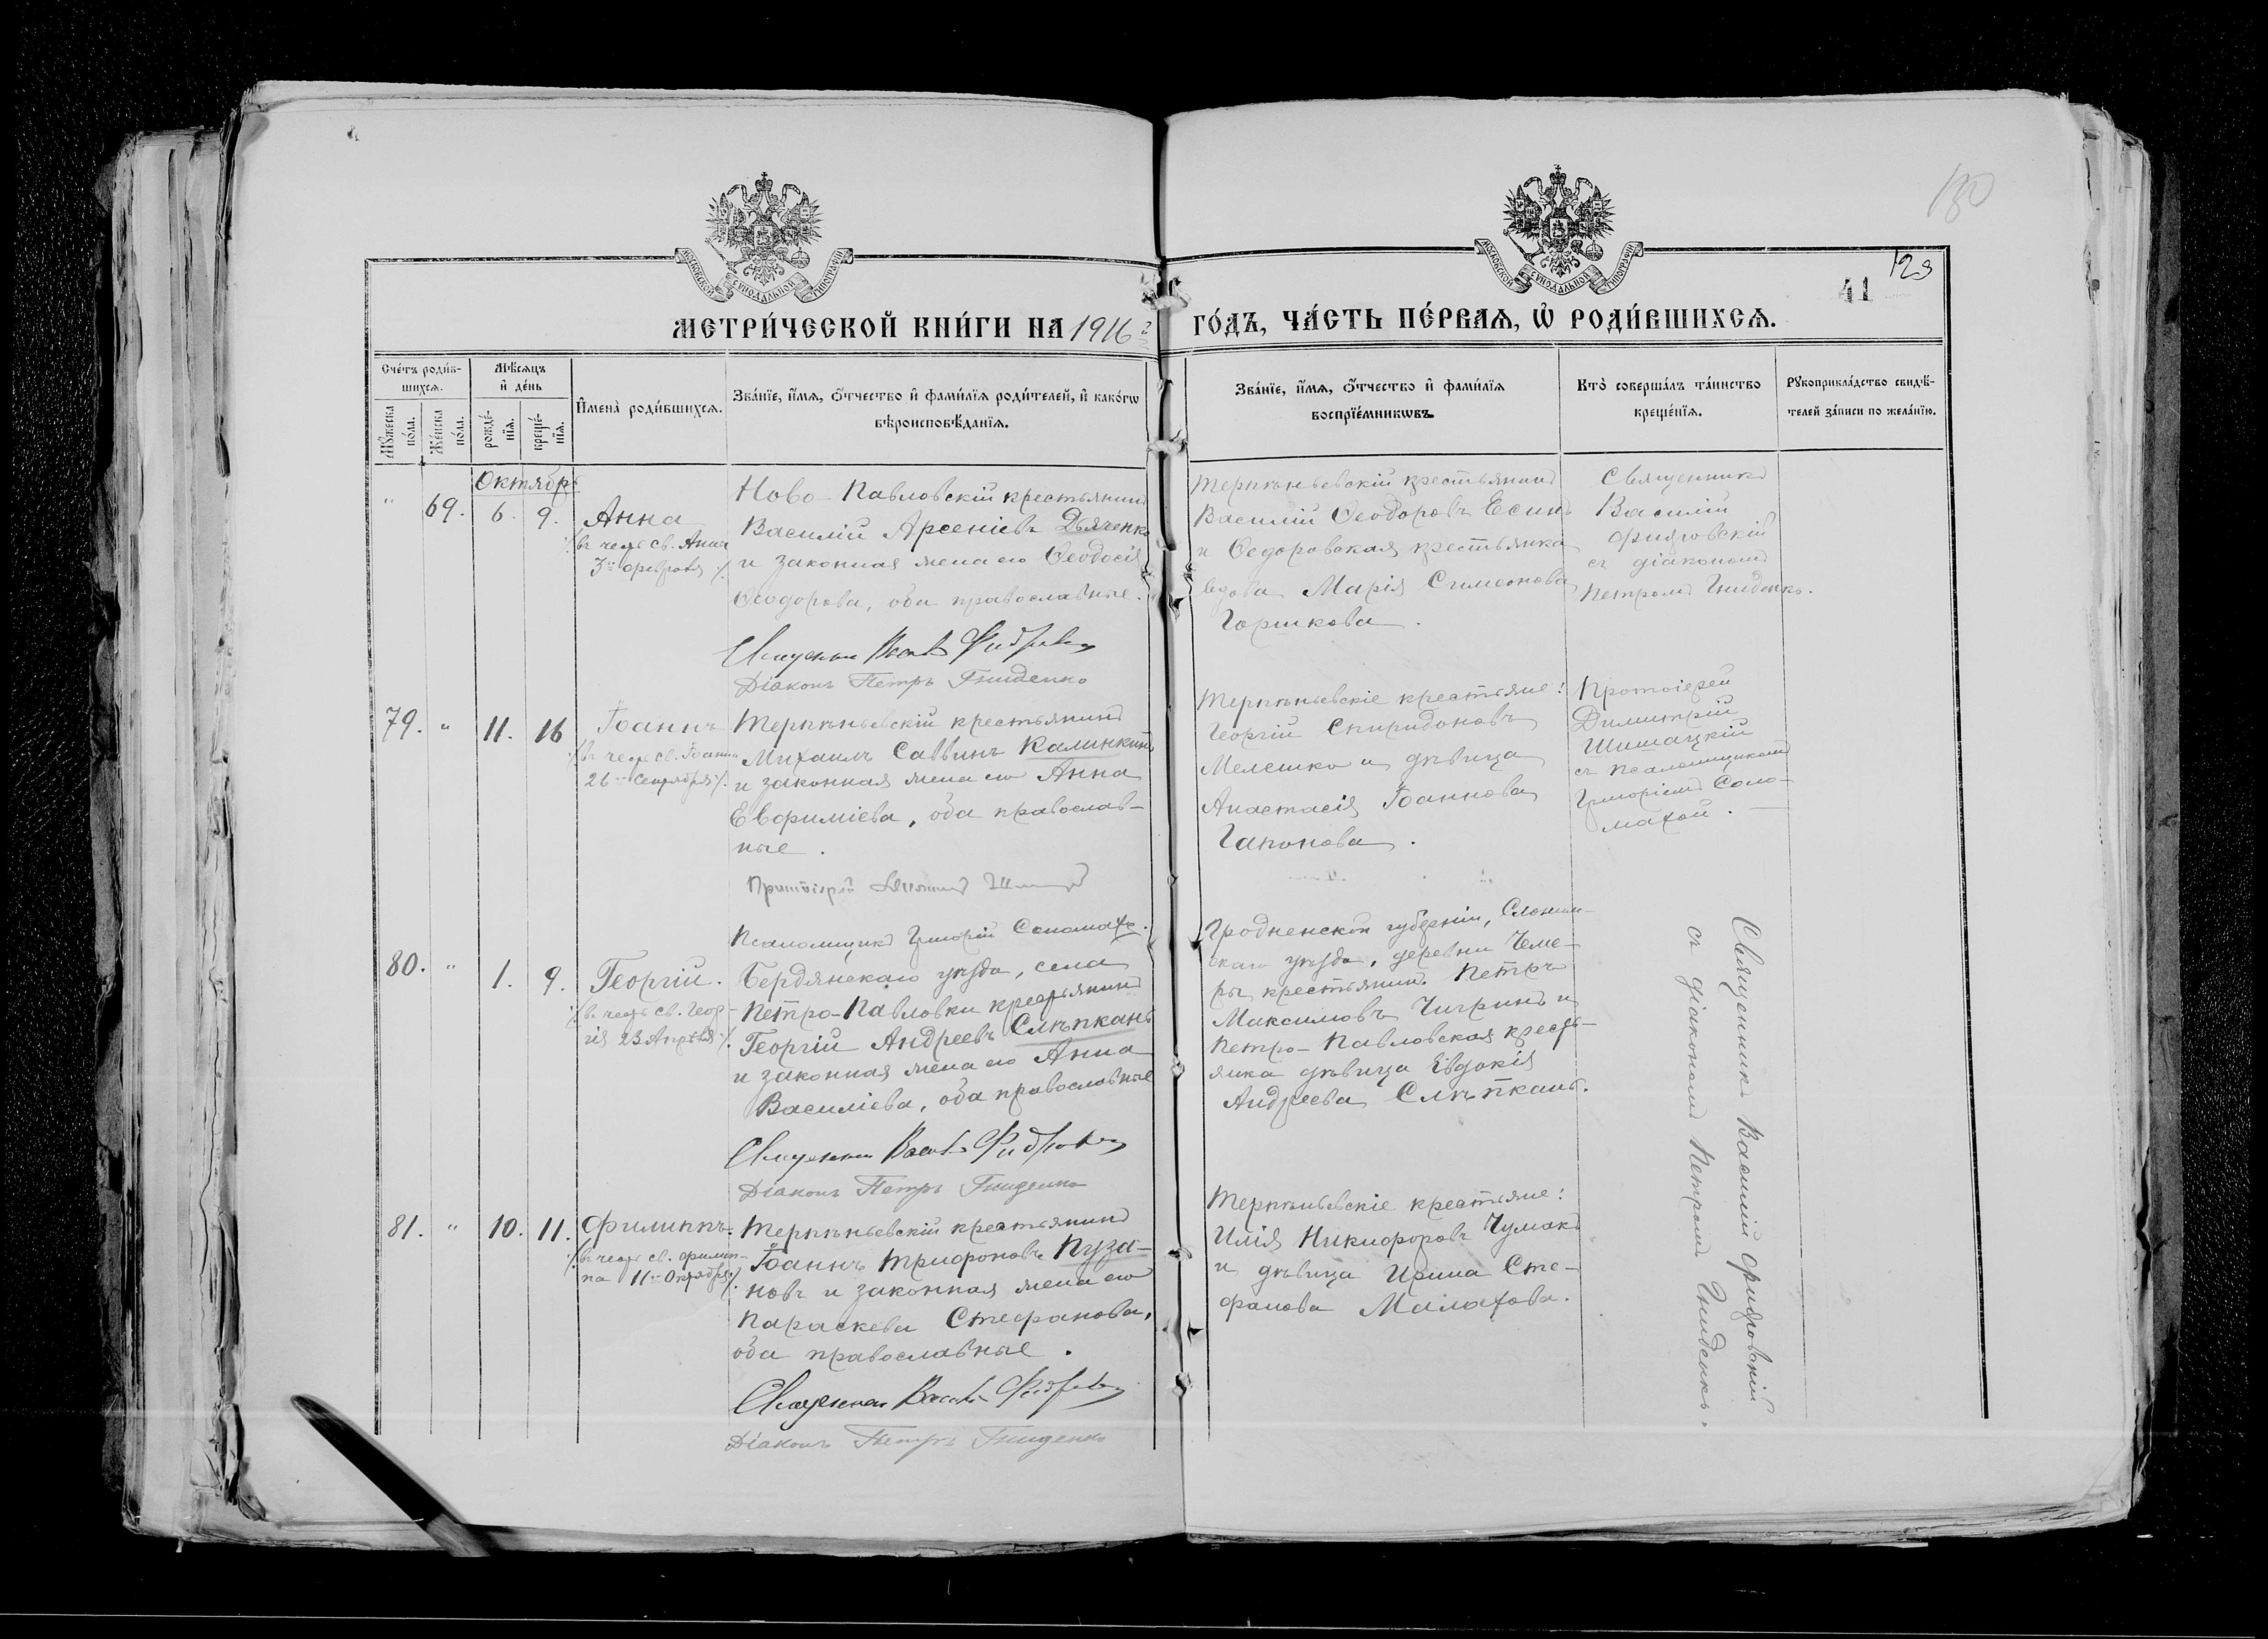 130
123
41
МОСКОВСКОЙ СѴНОДАЛЬНОЙ ТИПОГРАФІИ
МОСКОВСКОЙ СѴНОДАЛЬНОЙ ТИПОГРАФІИ
МЕТРИ́ЧЕСКОЙ КНИ́ГИ НА 1916 г ГО́ДЪ, ЧА́СТЬ ПЕ́РВАЯ, Ѡ҆ РОДИ́ВШИХСЯ.
Сче́тъ роди́вшихся.
Мꙋ́жеска по́ла.
Же́нска по́ла.
Мѣ́сяцъ и҆ де́нь
рожде́нїя.
креще́нїя.
И҆мена̀ роди́вшихся.
Зва́нїе, и҆́мя, ѻ҆́тчество и҆ фами́лїя роди́телей, и҆ како́гѡ
вѣроисповѣ́данїя.
Зва́нїе, и҆́мя, ѻ҆́тчество и҆ фами́лїя
воспрїе́мникѡвъ.
Кто̀ соверша́лъ та́инство
креще́нїя.
Рꙋкоприкла́дство свидѣ́телей за́писи по жела́нїю.
Октябрь
" 69. 6. 9.
Анна
въ честь св. Анны
3го Февраля
Ново-Павловскій крестьянинъ
Василій Арсеніевъ Дьяченко
и законная жена его Ѳеодосія
Ѳеодорова, оба православные.
Священникъ Васил Фидровск
Діаконъ Петръ Гниденко
Терпѣньевскій крестьянинъ
Василій Ѳеодоровъ Есинъ
и Ѳедоровская крестьянка
вдова Марія Симеонова
Горшкова.
Священникъ
Василій
Фидровскій
съ діакономъ
Петромъ Гниденко.
79. " 11. 16
Іоаннъ
въ честь св. Іоанна
26го Сентября
Терпѣньевскій крестьянинъ
Михаилъ Саввинъ Калинкинъ
и законная жена его Анна
Евѳиміева, оба православ-
ные.
Протоіерей
Псаломщикъ Григорій Соломаха.
Терпѣньевскіе крестьяне:
Георгій Спиридоновъ
Мелешко и дѣвица
Анастасія Іоаннова
Гапонова.
Протоіерей
Димитрій
Шишацкій
съ псаломщикомъ
Григоріемъ Соло-
махой.
80. " 1. 9.
Георгій.
въ честь св. Геор-
гія 23 Апрѣля
Бердянскаго уѣзда, села
Петро-Павловки крестьянинъ
Георгій Андреевъ Слѣпкань
и законная жена его Анна
Василіева, оба православные
Священникъ Васил Фидровск
Діаконъ Петръ Гниденко
Гродненской губерніи, Слоним-
скаго уѣзда, деревни Чеме-
ры крестьянинъ Петръ
Максимовъ Чигринъ и
Петро-Павловская кресть-
янка дѣвица Евдокія
Андреева Слѣпкань.
Священникъ Василій Фидровскій
съ діакономъ Петромъ Гниденкъ.
81. " 10. 11.
Филиппъ.
въ честь св. Филип-
па 11го Октября
Терпѣньевскій крестьянинъ
Іоаннъ Трифоновъ Пуза-
новъ и законная жена его
Параскева Стефанова,
оба православные.
Священникъ Васил Фидровск
Діаконъ Петръ Гниденко
Терпѣньевскіе крестьяне:
Илія Никифоровъ Чумакъ
и дѣвица Ирина Сте-
фанова Малахова.